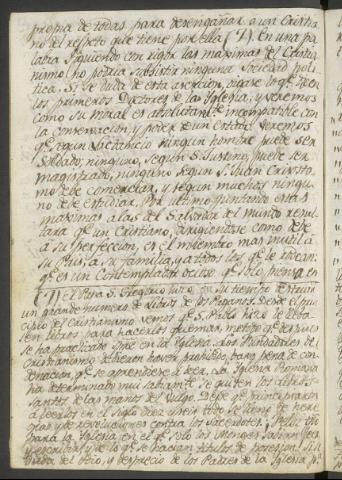 propia de todas para desengañar a un Cristia
no del respeto que tiene por ella (1) en una pa
labra siguiendo con rigor las maximas del Cristia
nismo no podria subsistir ninguna Sociedad poli
tica. Si se duda de esta asercion, oigase lo qe. dicen
los primeros Doctores de la Iglesia; y veremos
como su moral es absolutamte. incompatible con
la conservacion y poder de un Estado. Veremos
qe. segun Lactancio ningun hombre puede ser
Soldado; ninguno, segun S. Justino, puede ser
magistrado, ninguno segun S. Juan Crisosto
mo debe comerciar, y segun muchos ningu
no debe estudiar. Por ultimo juntando estas
maximas a las del Salvador del mundo resul
tara qe. un Cristiano, dirigiendose como debe
a su perfeccion, es el miembro mas inutil á
su Pais, a su familia, y a todos los qe. le rodean:
qe. es un Contemplativo ocioso qe. solo piensa en
(1) el Papa S. Gregorio hizo en su tiempo destruir
un grande numero de Libros de los Paganos. Desde el prin
cipio del Cristianismo vemos qe. S. Pablo hizo le lleba
sen libros para hacerlos quemar, metodo qe. despues
se ha practicado siempre en la Iglesia. Los Fundadores del
Cristianismo debieran haver prohibido, bajo pena de con
denacion, qe. se aprendiere á leer. La Iglesia Romana
ha determinado mui sabiamte. se quiten los libros
santos de las manos del Vulgo. Desde qe. principiaron
a leerlos en el Siglo diez
para la Iglesia en el qe. solo los Monges sabian leer
y escribir, y de lo qe. se hacian titulos de posesion.
del odio, y desprecio de los Padres de la Iglesia pr.